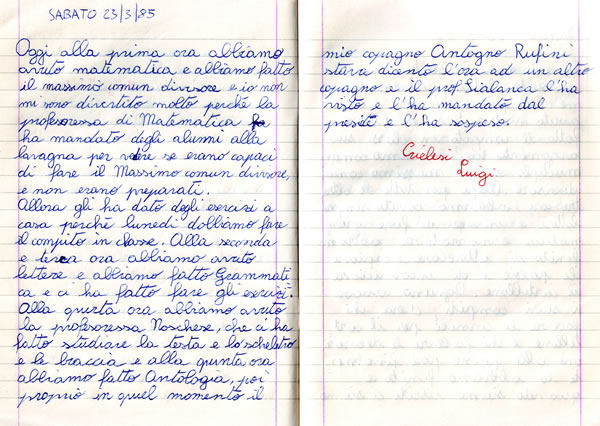 SABATO 23/3/85
Oggi alla prima ora abbiamo
avuto matematica e abbiamo fatto
il massimo comun divisore e io non
mi sono divertito molto perchè la
professoressa di Matematica fa
ha mandato degli alunni alla
lavagna per vedere se erano capaci
di fare il Massimo comun divisore,
e non erano preparati.
Allora gli ha dato degli esercisi a
casa perchè lunedi dobbiamo fare
il compito in classe. Alla seconda
e terza ora abbiamo avuto
lettere e abbiamo fatto Grammati
ca e ci ha fatto fare gli esercizi.
Alla quarta ora abbiamo avuto
la professoressa Noschese, che ci ha
fatto studiare la testa e lo scheletro
e le braccia e alla quinta ora
abbiamo fatto Antologia, poi
proprio in quel momento il
mio copagno Antogno Rufini
stava dicento l'ora ad un altro
copagno e il prof Sialanca l'ha
visto e l'ha mandato dal
preside e l'ha sospeso.
Crielesi
Luigi